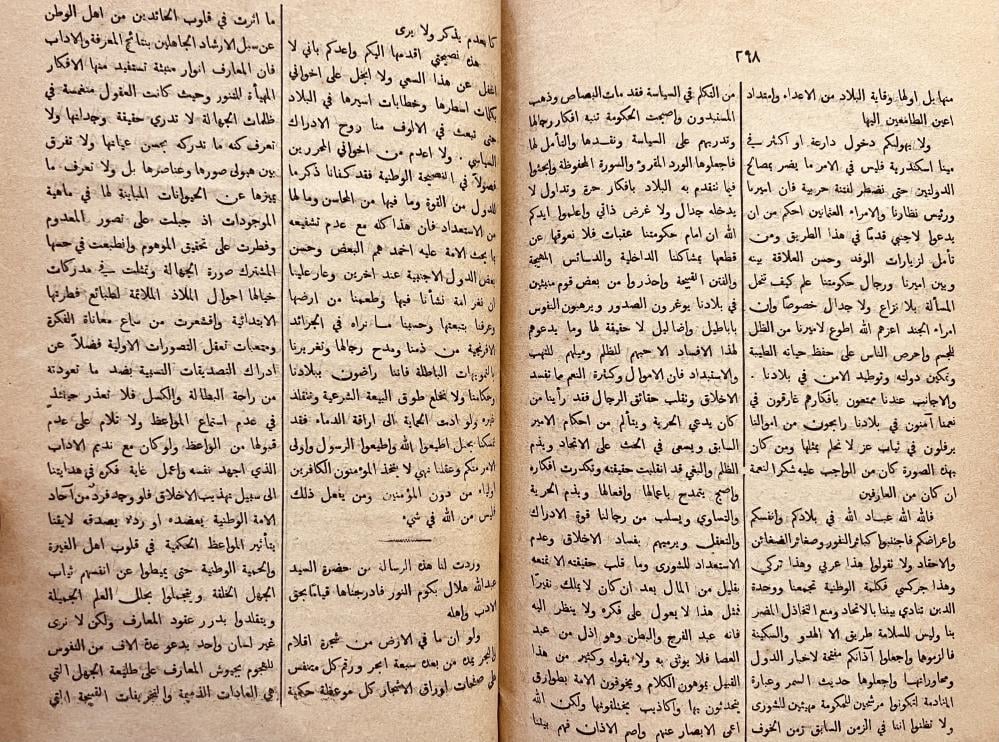 ٢٩٨
منها بل اولها وقاية البلاد من الاعداء وامتداد
اعين الطامعين اليها
ولا يهولنكم دخول دارعة او اكثر في
مينا اسكندرية فليس في الامر ما يضر بمصالح
الدولتين حتى نضطر لفتنة حربية فان اميرنا
ورئيس نظارنا والامراء العثمانين احكم من ان
يدعوا لاجنبي قدمًا في هذا الطريق ومن
تأمل لزيارات الوفد وحسن العلاقة بينه
وبين اميرنا ورجال حكومتنا علم كيف تنحل
المسألة بلا نزاع ولا جدال خصوصًا وان
امراء الجند اعزهم الله اطوع لاميرنا من الظل
للجسم واحرص الناس على حفظ حياته الطيبة
وتمكين دولته وتوطيد الامن في بلادنا .
والاجانب عندنا ممتعون بافكارهم غارقون في
نعمنا آمنون في بلادنا رابحون من اموالنا
يرفلون في ثياب عز لا نحلم بمثلها ومن كان
بهذه الصورة كان من الواجب عليه شكر النعمة
ان كان من العارفين
فالله الله عباد الله في بلادكم وانفسكم
واعراضكم فاجتنبوا كبائر النفور وصغائر الضغائن
والاحقاد ولا تقولوا هذا عربي وهذا تركي
وهذا جركسي فكلمة الوطنية تجمعنا ووحدة
الدين تنادي بيننا بالاتحاد ومنع التخاذل المضر
بنا وليس للسلامة طريق الا الهدو والسكينة
فالزموها واجعلوا آذانكم مفتحة لاخبار الدول
ومحاوراتها واجعلوها حديث السمر وعبارة
المنادمة لتكونوا مرشحين للحكومة مهيئين للشورى
ولا تظنوا اننا في الزمن السابق زمن الخوف
من التكلم في السياسة فقد مات البصاص وذهب
المستبدون واصبحت الحكومة تنبه افكار رجالها
وتدربهم على السياسة ونقدها والتأمل لها
فاجعلوها الورد المقروء والسورة المحفوظة وابحثوا
فيما نتقدم به البلاد بافكار حرة وتداول لا
يدخله جدال ولا غرض ذاتي واعلموا ايدكم
الله ان امام حكومتنا عقبات فلا نعوقها عن
قطعها بمشاكلنا الداخلية والدسائس المهيجة
والفتن القبيحة واحذروا من بعض قوم منبثين
في بلادنا يوغرون الصدور ويرهبون النفوس
باباطيل واضاليل لا حقيقة لها وما يدعوهم
لهذا الافساد الا حبهم للظلم وميلهم للنهب
والاستبداد فان الاموال وكثرة النعم مما تفسد
الاخلاق ونقلب حقائق الرجال فقد رأينا من
كان يدعي الحرية ويتألم من احكام الامير
السابق ويسعى في الحث على الاتحاد ويذم
الظلم والبغي قد انقلبت حقيقته وتكدرت افكاره
واصبح يتمدح باعمالها وافعالها ويذم الحرية
والتساوي ويسلب من رجالنا قوة الادراك
والتعقل ويرميهم بفساد الاخلاق وعدم
الاستعداد للشورى وما قلب حقيقته الا تمتعه
بقليل من المال بعد ان كان لا يملك نقيرًا
فمثل هذا لا يعول على فكره ولا ينظر اليه
فانه عبد الفرج والبطن وهو اذل من عبد
العصا فلا يوثق به ولا بقوله وكثير من هذا
القبيل يموهون الكلام ويخوفون الامة بطوارق
يتحدثون بها واكاذيب يختلقونها ولكن الله
اعمى الابصار عنهم واصم الآذان فهم بيننا
كالعدم يذكر ولا يرى
هذه نصيحتي اقدمها اليكم واعدكم باني لا
اغفل عن هذا السعي ولا ابخل على اخواني
بكلمات اسطرها وخطابات اسيرها في البلاد
حتى نبعث في الالوف منا روح الادراك
السياسي . ولا اعدم من اخواني المحررين
فصولاً في النصيحة الوطنية فقد كفانا ذكر ما
للدول من القوة وما فيها من المحاسن وما لها
من الاستعداد فان هذا كله مع عدم تشفيعه
بما بحث الامة عليه اخمد همم البعض وحسن
بعض الدول الاجنبية عند اخرين وعار علينا
ان نغر امة نشأنا فيها وطعمنا من ارضها
وعرفنا بتبعتها وحسبنا ما نراه في الجرائد
الافرنجية من ذمنا ومدح رجالها وتغريرنا
بالتمويهات الباطلة فاننا راضون ببلادنا
وحكامنا ولا نخلع طوق البيعة الشرعية ونتقلد
غيره ولو ادت الحماية الى اراقة الدماء فقد
تمسكنا بحبل اطيعوا الله واطيعوا الرسول واولي
الامر منكم وعقلنا نهي لا يتخذ المؤمنون الكافرين
اولياء من دون المؤمنين ومن يفعل ذلك
فليس من الله في شيء
وردت لنا هذه الرسالة من حضرة السيد
عبد الله هلال بكوم النور فادرجناها قيامًا بحق
الادب واهله
ولو ان ما في الارض من شجرة اقلام
والبحر يمده من بعده سبعة ابحر ورقم كل متنفس
على صفحات اوراق الاشجار كل موعظة حكمية
ما اثرت في قلوب الحائدين من اهل الوطن
عن سبل الارشاد الجاهلين بنتائج المعرفة والاداب
فان المعارف انوار منبثة تستفيد منها الافكار
المهيأة للتنور وحيث كانت العقول منغمسة في
ظلمات الجهالة لا تدري حقيقة وجدانها ولا
تعرف كنه ما تدركه بحسن عيانها ولا تفرق
بين هيولى صورها وعناصرها بل ولا تعرف ما
يميزها عن الحيوانات المباينة لها في ماهية
الموجودات اذ جبلت على تصور المعدوم
وفطرت على تحقيق الموهوم وانطبعت في حسها
المشترك صورة الجهالة وتمثلت في مدركات
خيالها احوال الملاذ الملائمة لطبائع فطرتها
الابتدائية واقشعرت من سماع معاناة الفكرة
ومتعبات تعقل التصورات الاولية فضلاً عن
ادراك التصديقات النسبية بضد ما تعودته
من راحة البطالة والكسل فلا تعذر حينئذٍ
في عدم استماع المواعظ ولا تلام على عدم
قبولها من الواعظ ولو كان مع نديم الاداب
الذي اجهد نفسه واعمل غاية فكره في هدايتنا
الى سبيل تهذيب الاخلاق فلو وجد فرد من آحاد
الامة الوطنية يعضده او ردء يصدقه لايقنا
بتأثير المواعظ الحكمية في قلوب اهل الغيرة
والحمية الوطنية حتى يميطوا عن انفسهم ثياب
الجهل الخلقة ويتجملوا بحلل العلم الجميلة
ويتقلدوا بدرر عقود المعارف ولكن لا نرى
غير لسان واحد يدعو عدة الاف من النفوس
للهجوم بجيوش المعارف على طليعة الجهل التي
هي العادات الذميمة والتخريفات القبيحة التي